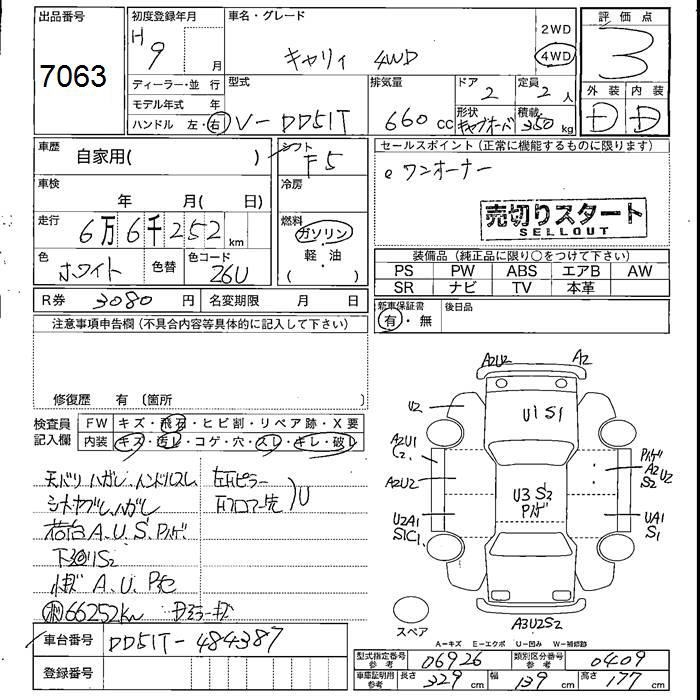 出品番号
7063
初度登録年月
H 9 月
ディーラー・並 行
モデル年式 年
ハンドル 左・右
車名・グレード
キャリィ 4WD
2WD
4WD
型式
V-DD51T
排気量
660 cc
ドア
2
定員
2 人
形状
キャブオーバ
積載
350 kg
評 価 点
3
外 装 内 装
D D
車歴
自家用( )
シフト
F5
車検
年 月( 日)
冷房
走行
6万6千252 km
燃料
ガソリン
軽・油
( )
色
ホワイト
色替
色コード
26U
R券 3080 円 名変期限 月 日
セールスポイント(正常に機能するものに限ります)
ワンオーナー
売切りスタート
SELLOUT
装備品(純正品に限り○をつけて下さい)
PS PW ABS エアB AW
SR ナビ TV 本革
新車保証書
有・無
後日品
注意事項申告欄(不具合内容等具体的に記入して下さい)
修復歴 有〔箇所
検査員
記入欄
FW キズ・飛石・ヒビ割・リペア跡・X要
内装 キズ・汚レ・コゲ・穴・スレ・キレ・破レ
天バリハガレ ハンドルスレ
シートヤブレ、ハガレ
荷台 A.U.S.Pハゲ
下廻リS2
小キズ A.U.P
66252km
左右ピラー
右フロアー先
)U
A2U2 A2
U2
U1S1
A2U1
C2
A2U2
U2A1
S1C1
U3 S2
Pハゲ
Pハゲ
A2 U2
S2
UA1
S1
A3U2S2
スペア
A-キズ E-エクボ U-凹み W-補修跡
車台番号 DD51T-484387
登録番号
型式指定番号
参考
06926
類別区分番号
参考
0409
車庫証明用
参考
長さ 329 cm 幅 139 cm 高さ 177 cm